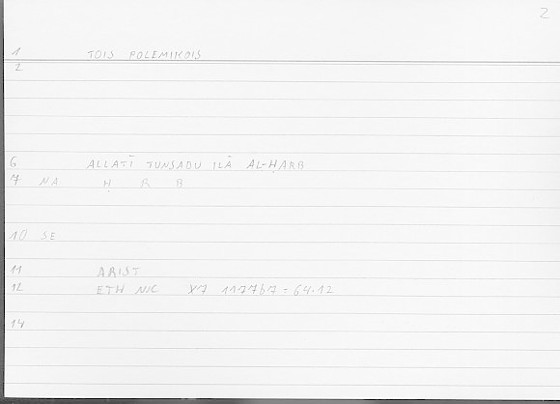 2
1 TOIS POLEMIKOIS
2
6 ALLATĪ TUNSADU ILĀ AL-ḤARB
7 NA Ḥ R B
10 SE
11 ARIST
12 ETH NIC X7 1177b7 = 64.12
14